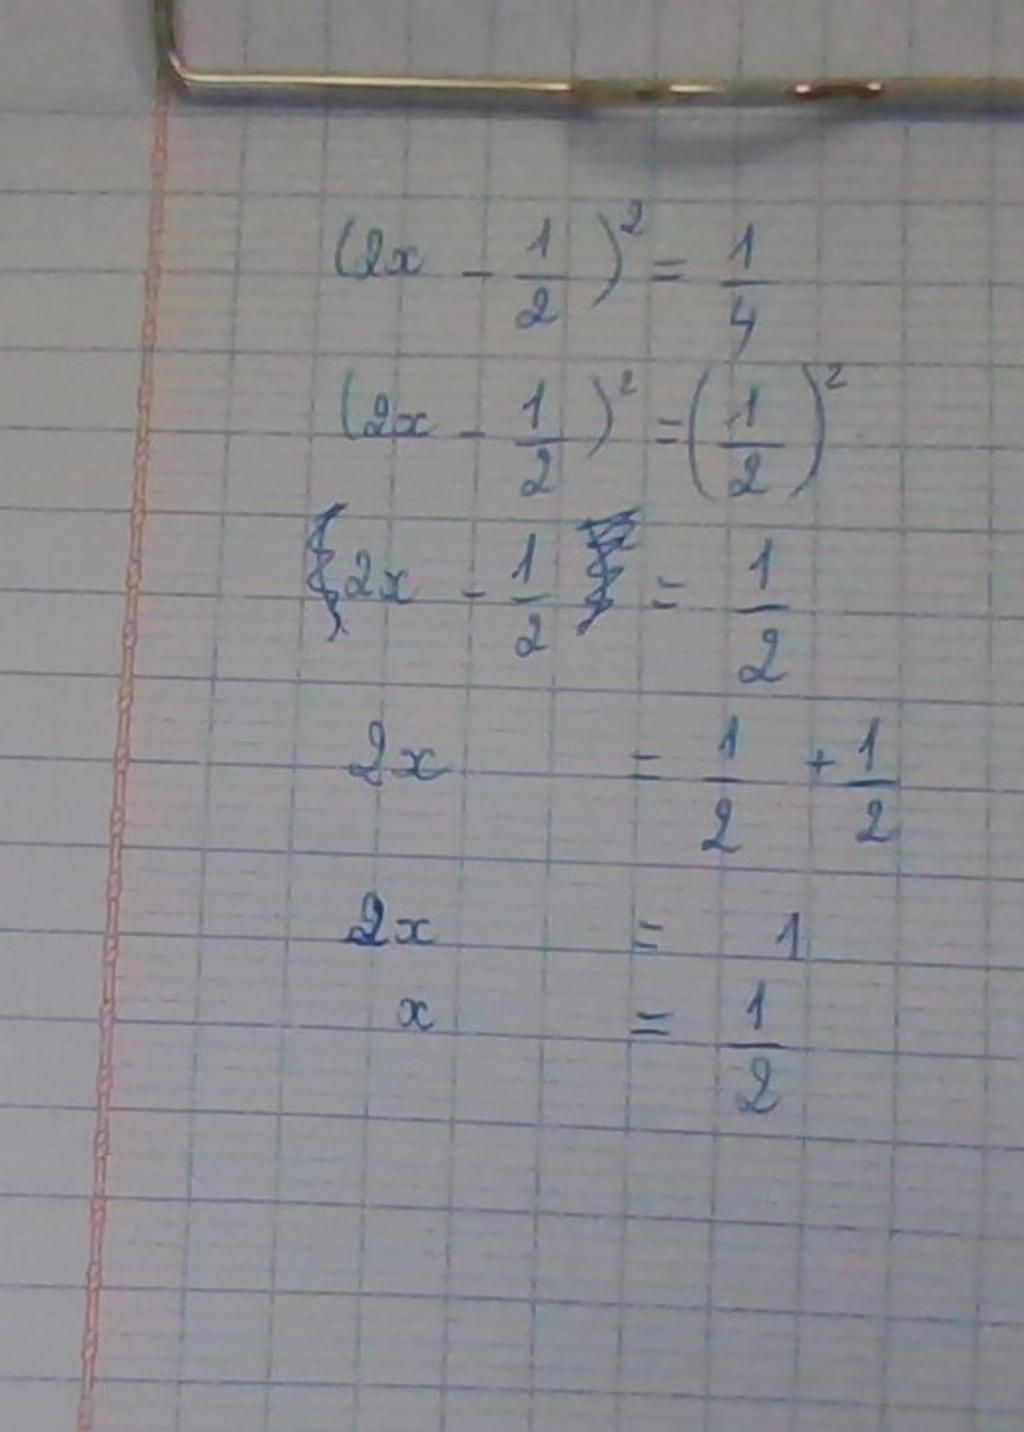 (2x - 1/2)² = 1/4
(2x - 1/2)² = (1/2)²
2x - 1/2 = 1/2
2x = 1/2 + 1/2
2x = 1
x = 1/2